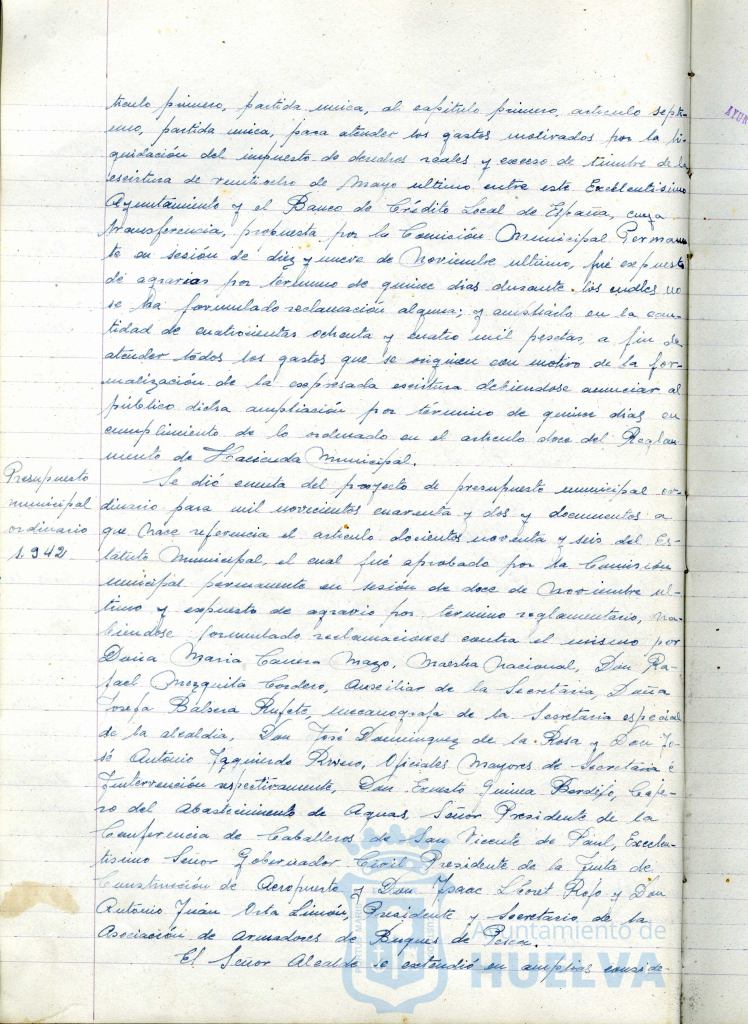 tículo primero, partida unica, al capitulo primero, articulo septi-
mo, partida unica, para atender los gastos motivados por la li-
quidación del impuesto de derechos reales y exceso de timbre de la
escritura de veintiocho de Mayo ultimo entre este Excelentisimo
Ayuntamiento y el Banco de Crédito Local de España, cuya
transferencia, propuesta por la Comisión Municipal Permanen
te en sesión de diez y nueve de Noviembre ultimo, fué expuesta
de agravios por termino de quince dias durante los cuales no
se ha formulado reclamación alguna; y ampliarla en la can-
tidad de cuatrocientas ochenta y cuatro mil pesetas, a fin de
atender todos los gastos que se originen con motivo de la for-
malización de la expresada escritura debiendose anunciar al
público dicha ampliación por término de quince dias en
cumplimiento de lo ordenado en el articulo doce del Regla-
mento de Hacienda Municipal.
Presupuesto
municipal
ordinario
1.942.
Se dió cuenta del proyecto de presupuesto municipal or-
dinario para mil novecientos cuarenta y dos y documentos a
que hace referencia el articulo doscientos noventa y seis del Es-
tatuto Municipal, el cual fué aprobado por la Comisión
municipal permanente en sesión de doce de Noviembre ul-
timo y expuesto de agravio por termino reglamentario, ha-
biendose formulado reclamaciones contra el mismo por
Doña Maria Mazo, Maestra Nacional, Don Ra-
fael Mezquita Cordero, Auxiliar de la Secretaria, Doña
Josefa Balsera Rufete, mecanografa de la Secretaria especial
de la alcaldia, Don José Dominguez de la Rosa y Don Jo-
sé Antonio Izquierdo Rivero, Oficiales Mayores de Secretaria é
Intervención respectivamente, Don Ernesto Guinea, Caje-
ro del Abastecimiento de Aguas, Señor Presidente de la
Conferencia de Caballeros de San Vicente de Paul, Excelen-
tisimo Señor Gobernador Civil Presidente de la Junta de
Construcción de Aeropuerto y Don Isaac Lloret Rojo y Don
Antonio Juan Orta Limón, Presidente y Secretario de la
Asociación de Armadores de Buques de Pesca.
El Señor Alcalde se extendió en amplias conside-
Ayuntamiento de
HUELVA